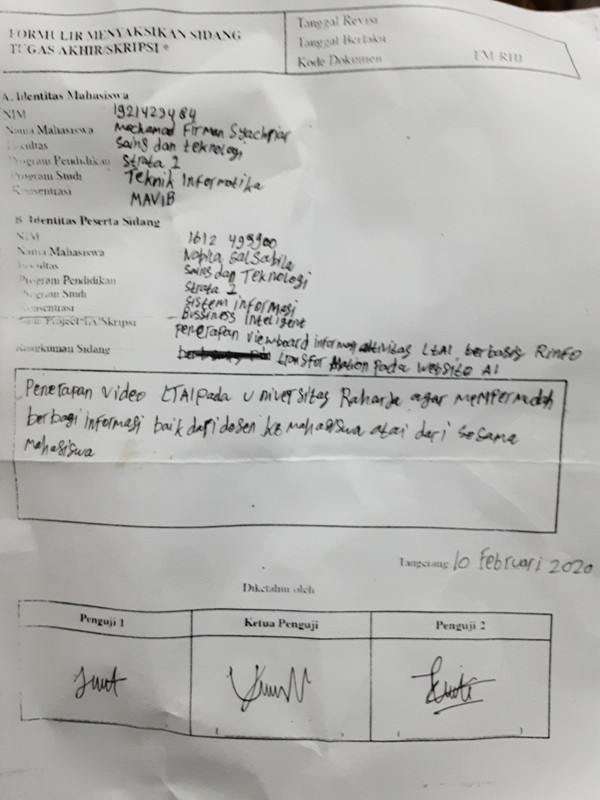 FORMULIR MENYAKSIKAN SIDANG
TUGAS AKHIR/SKRIPSI *
Tanggal Revisi
Tanggal Berlaku
Kode Dokumen FM-RHJ
A. Identitas Mahasiswa
NIM 1921429484
Nama Mahasiswa Mochamad Firman Syachpiar
Fakultas Sains dan teknologi
Program Pendidikan Strata 1
Program Studi Teknik Informatika
Konsentrasi MAVIB
B. Identitas Peserta Sidang
NIM 1612 499900
Nama Mahasiswa Nabila Salsabila
Fakultas Sains dan Teknologi
Program Pendidikan Strata 1
Program Studi Sistem informasi
Konsentrasi Bussiness Inteligent
Judul Project TA/Skripsi penerapan viewboard informasi aktivitas LTAI berbasis Rinfo
transformation pada website AI
Rangkuman Sidang
Penerapan video LTAI pada universitas Raharja agar mempermudah
berbagi informasi baik dari dosen ke mahasiswa atai dari sesama
mahasiswa
Tangerang 10 Februari 2020
Diketahui oleh
Penguji 1 Ketua Penguji Penguji 2